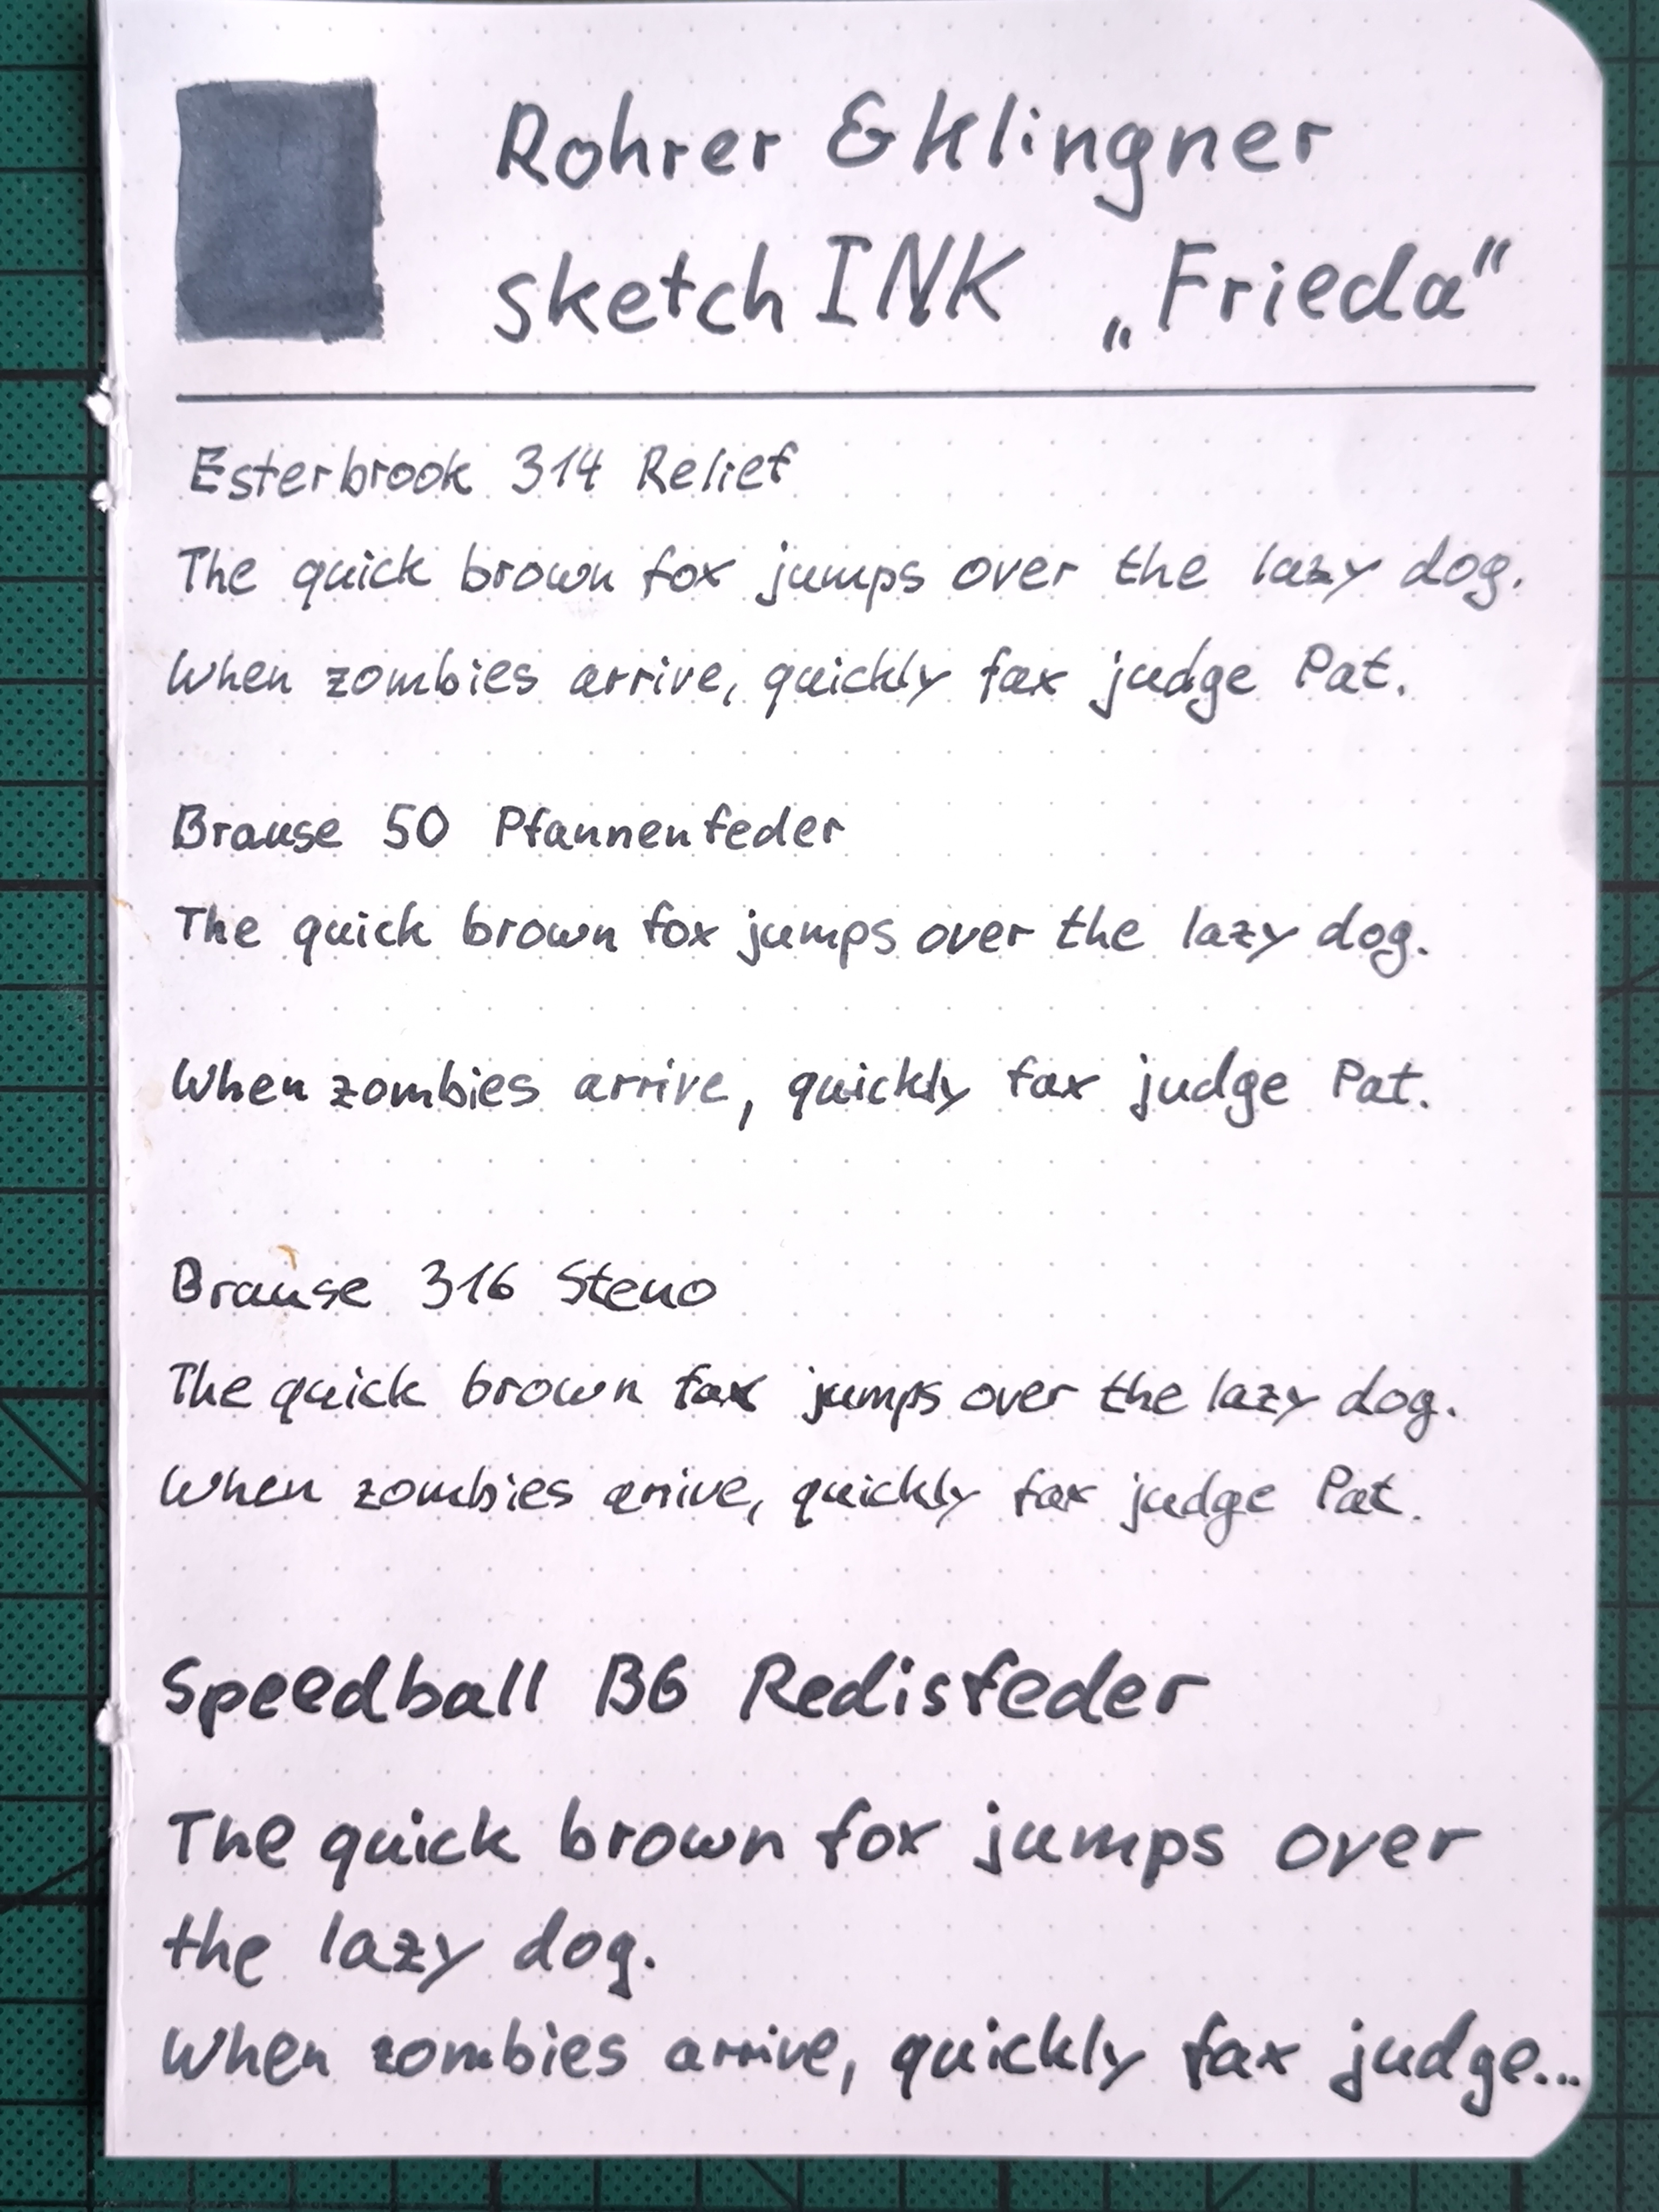 Rohrer & Klingner
sketchINK „Frieda“
Esterbrook 314 Relief
The quick brown fox jumps over the lazy dog.
When zombies arrive, quickly fax judge Pat.
Brause 50 Pfannenfeder
The quick brown fox jumps over the lazy dog.
When zombies arrive, quickly fax judge Pat.
Brause 316 Steno
The quick brown fox jumps over the lazy dog.
When zombies arrive, quickly fax judge Pat.
Speedball B6 Redisfeder
The quick brown fox jumps over
the lazy dog.
When zombies arrive, quickly fax judge...